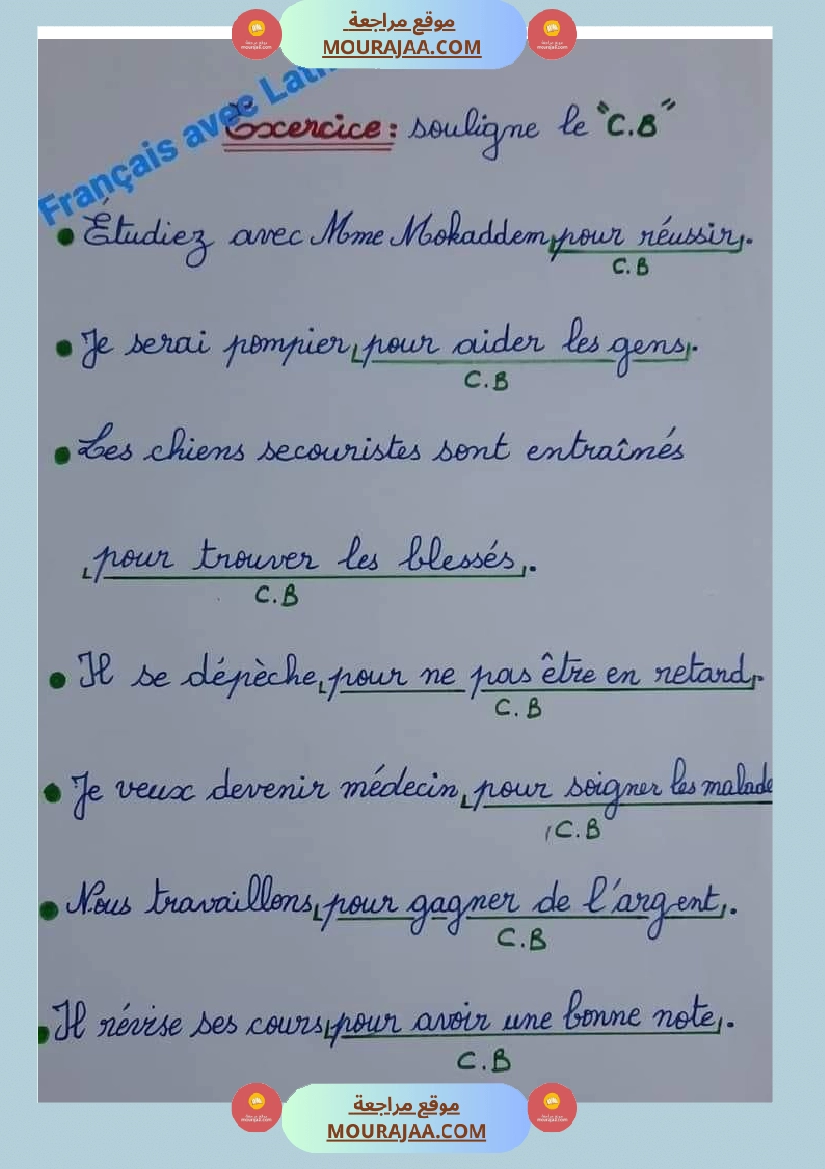 موقع مراجعة
MOURAJAA.COM
Français avec
Excercice : souligne le "C.B"
Étudiez avec Mme Mokaddem pour réussir.
C.B
Je serai pompier pour aider les gens.
C.B
Les chiens secouristes sont entraînés
pour trouver les blessés.
C.B
Il se dépèche pour ne pas être en retard.
C.B
Je veux devenir médecin pour soigner les malade
C.B
Nous travaillons pour gagner de l'argent.
C.B
Il révise ses cours pour avoir une bonne note.
C.B
موقع مراجعة
MOURAJAA.COM